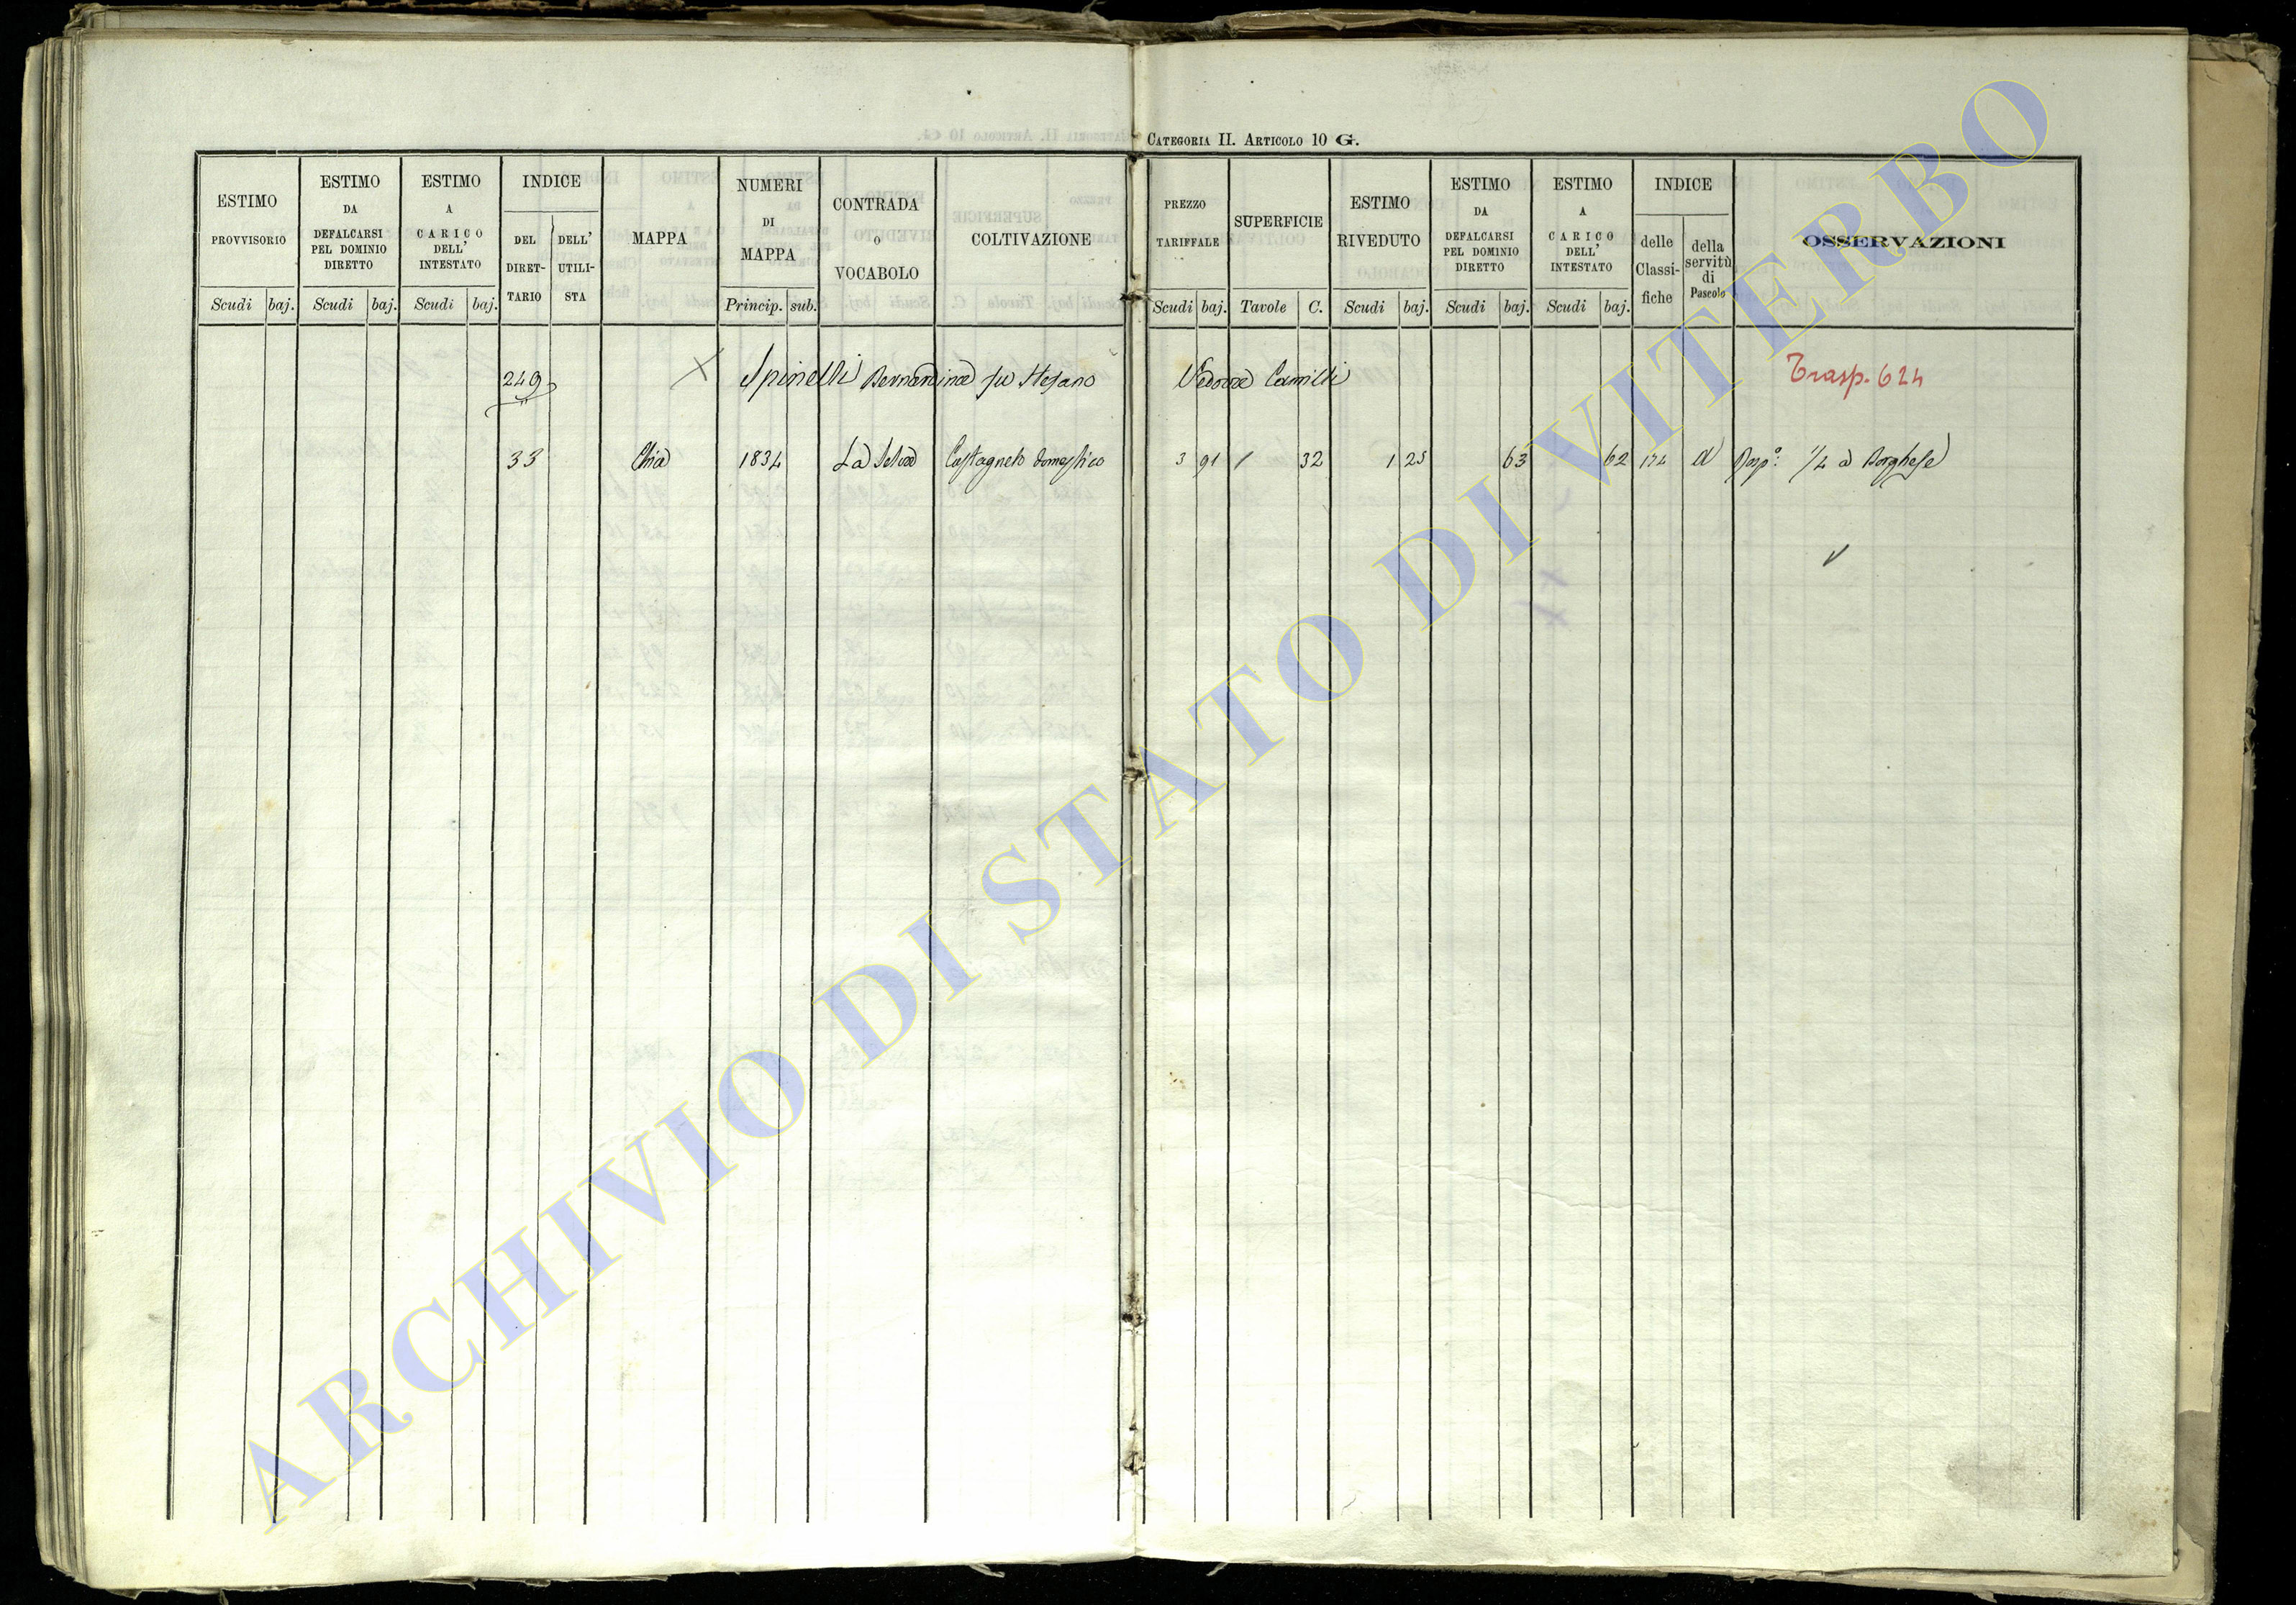 CATEGORIA II. ARTICOLO 10 G.
ESTIMO PROVVISORIO
Scudi baj.
ESTIMO DA DEFALCARSI PEL DOMINIO DIRETTO
Scudi baj.
ESTIMO A CARICO DELL' INTESTATO
Scudi baj.
INDICE
DEL DIRET-TARIO
DELL' UTILI-STA
MAPPA
NUMERI DI MAPPA
Princip. sub.
CONTRADA O VOCABOLO
COLTIVAZIONE
PREZZO TARIFFALE
Scudi baj.
SUPERFICIE
Tavole C.
ESTIMO RIVEDUTO
Scudi baj.
ESTIMO DA DEFALCARSI PEL DOMINIO DIRETTO
Scudi baj.
ESTIMO A CARICO DELL' INTESTATO
Scudi baj.
INDICE
delle Classi-fiche
della servitù di Pascolo
OSSERVAZIONI
249 Spinelli Bernardina fu Stefano Vedova Camilli Trasp. 624
33 Chia 1834 La Selva Castagneto domestico 3 91 32 1 25 63 62 d Risp. 1/4 a Borghese
ARCHIVIO DI STATO DI VITERBO